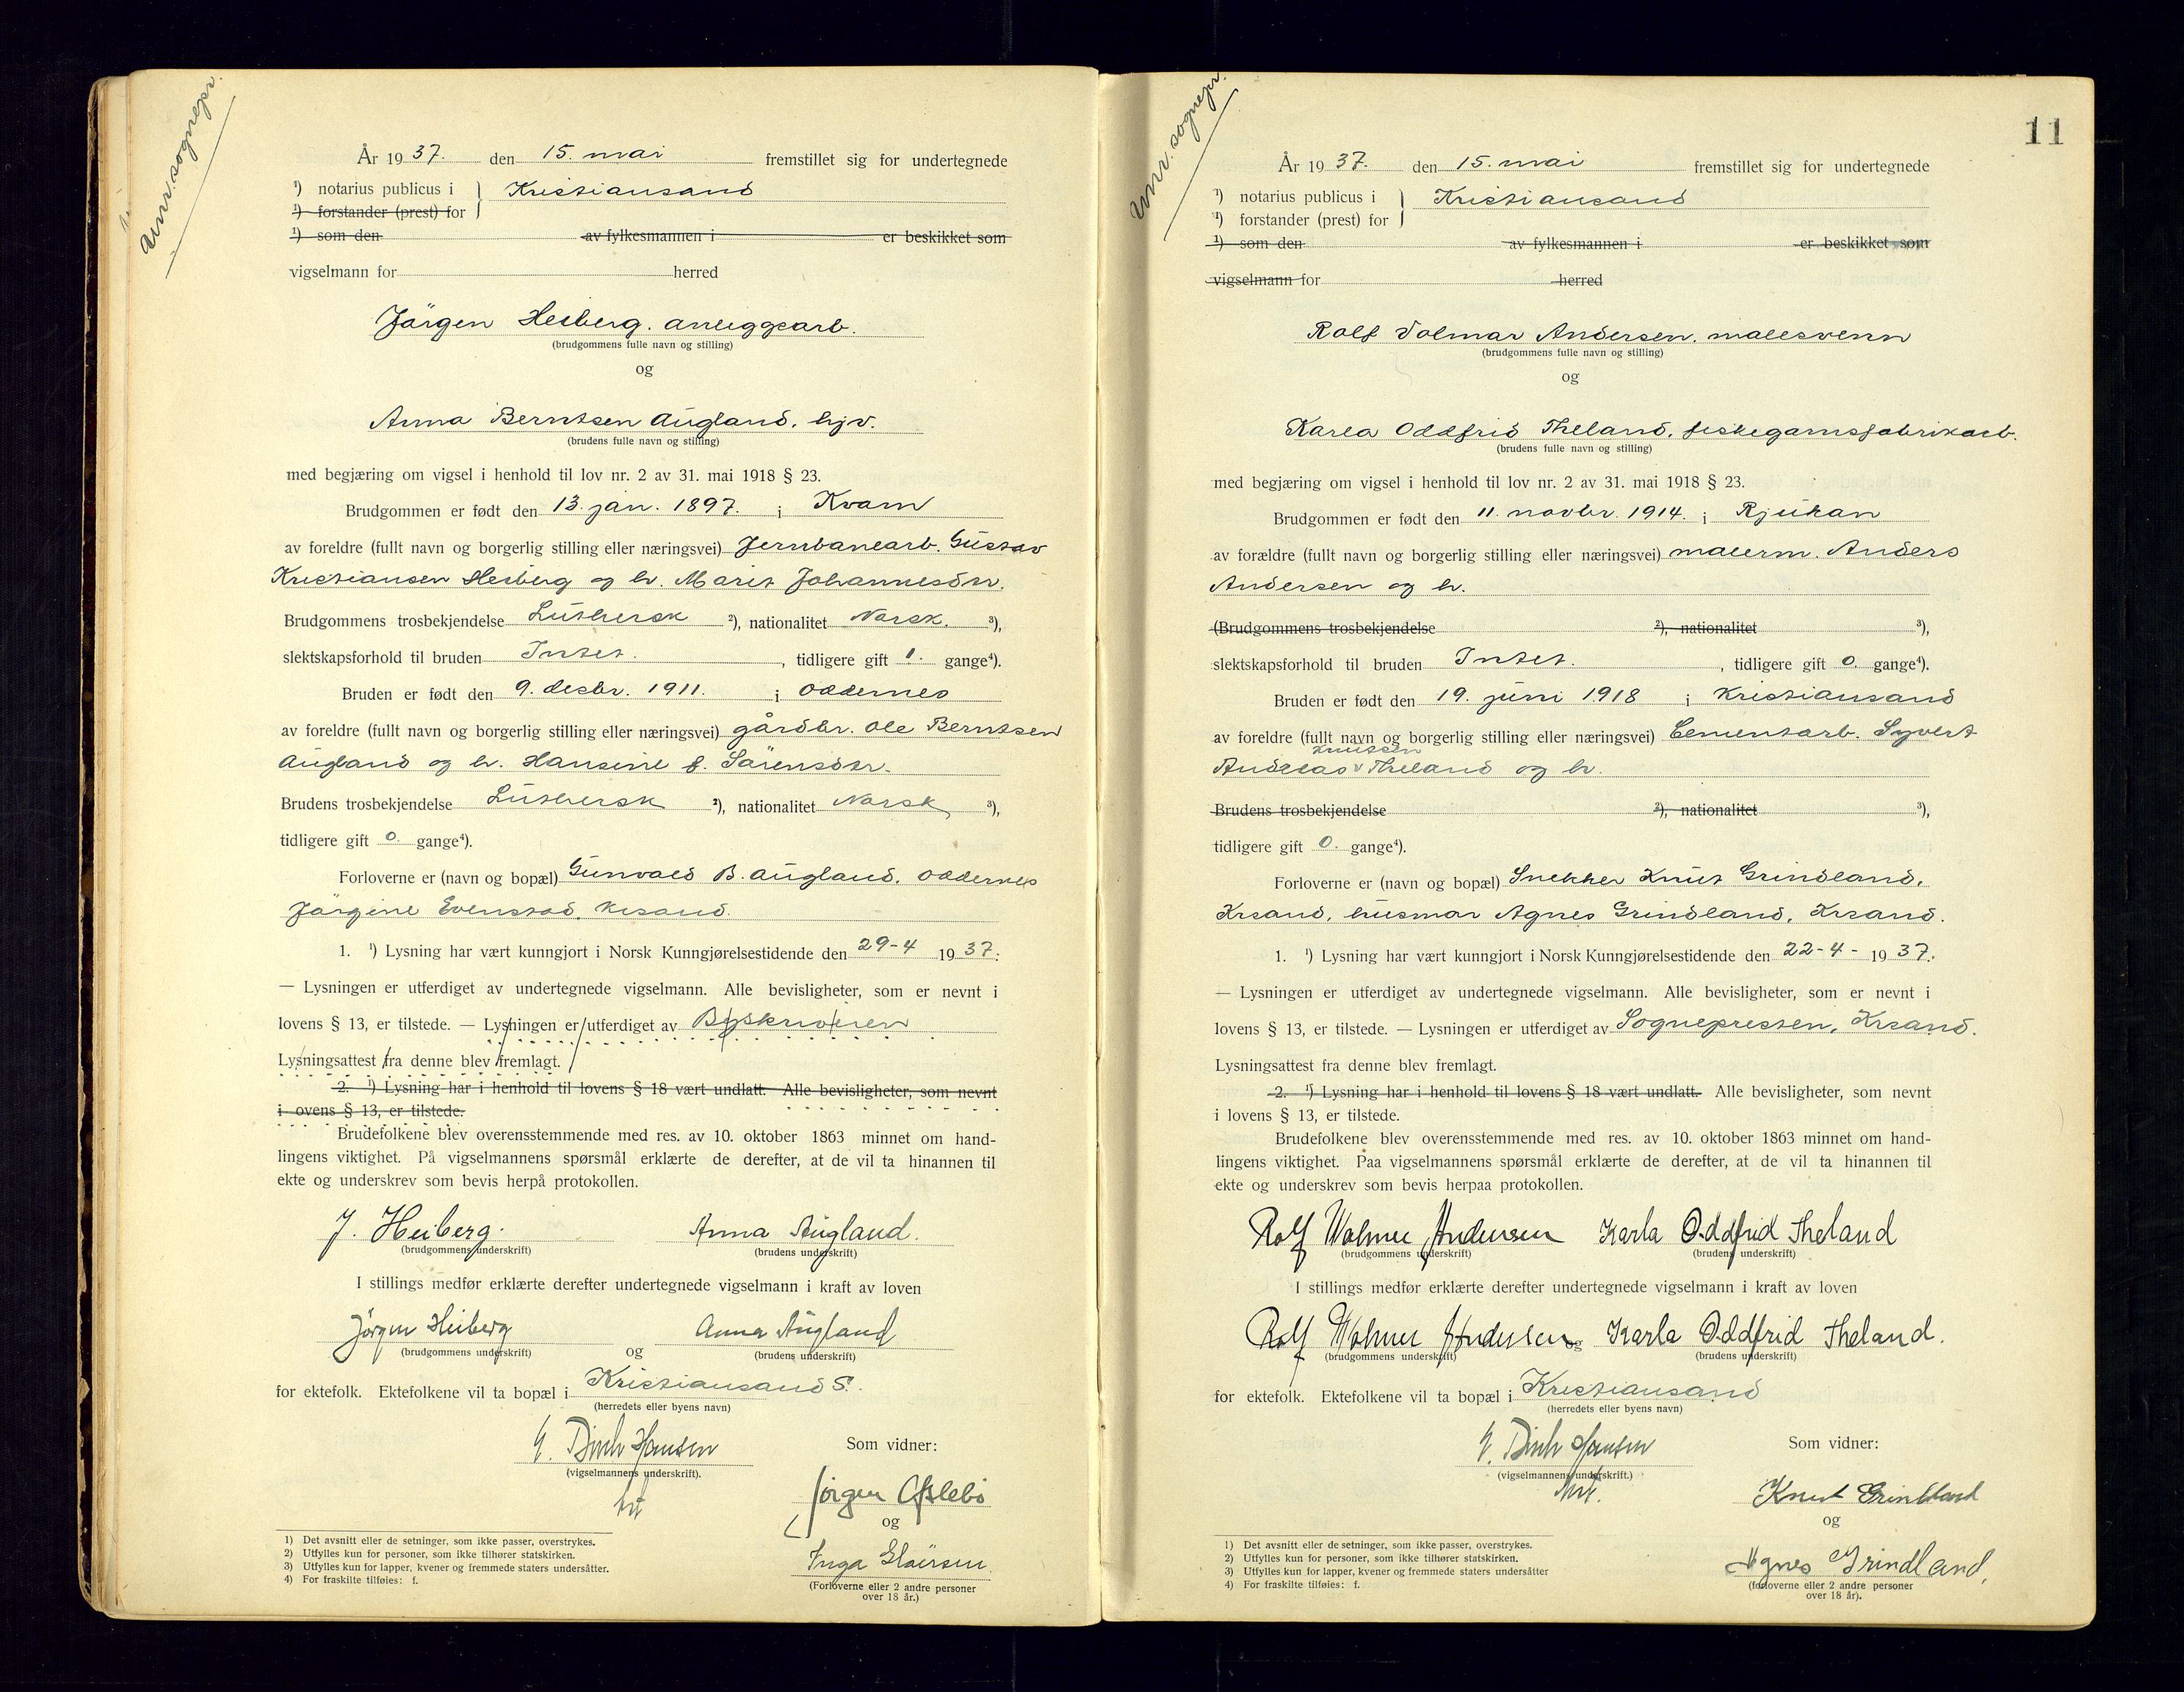 Anr. sognepr.
År 1937. den 15. mai fremstillet sig for undertegnede
¹) notarius publicus i } Kristiansand
¹) forstander (prest) for
¹) som den av fylkesmannen i er beskikket som
vigselmann for herred
Jörgen Heiberg. anleggsarb.
(brudgommens fulle navn og stilling)
og
Anna Berntsen Augland, hjv.
(brudens fulle navn og stilling)
med begjæring om vigsel i henhold til lov nr. 2 av 31. mai 1918 § 23.
Brudgommen er født den 13. jan. 1897. i Kvam
av foreldre (fullt navn og borgerlig stilling eller næringsvei) Jernbanearb. Gustav
Kristiansen Heiberg og h. Marit Johannesdtr.
Brudgommens trosbekjendelse Luthersk ²), nationalitet Norsk. ³),
slektskapsforhold til bruden Intet. , tidligere gift 1. gange⁴).
Bruden er født den 9. desbr. 1911. i Oddernes
av foreldre (fullt navn og borgerlig stilling eller næringsvei) gårdbr. Ole Berntsen
Augland og h. Hansine f. Sörensdtr.
Brudens trosbekjendelse Luthersk ²), nationalitet Norsk ³),
tidligere gift 0. gange⁴).
Forloverne er (navn og bopæl) Gunvald B. Augland, Oddernes
Jörgine Evenstad, Krsand.
1. ¹) Lysning har vært kunngjort i Norsk Kunngjørelsestidende den 29-4 1937.
— Lysningen er utferdiget av undertegnede vigselmann. Alle bevisligheter, som er nevnt i
lovens § 13, er tilstede. — Lysningen er utferdiget av Byskriveren
Lysningsattest fra denne blev fremlagt.
2. ¹) Lysning har i henhold til lovens § 18 vært undlatt. Alle bevisligheter, som nevnt
i ovens § 13, er tilstede.
Brudefolkene blev overensstemmende med res. av 10. oktober 1863 minnet om hand-
lingens viktighet. På vigselmannens spørsmål erklærte de derefter, at de vil ta hinannen til
ekte og underskrev som bevis herpå protokollen.
J. Heiberg. Anna Augland.
(brudgommens underskrift) (brudens underskrift)
I stillings medfør erklærte derefter undertegnede vigselmann i kraft av loven
Jörgen Heiberg og Anna Augland
(brudgommens underskrift) (brudens underskrift)
for ektefolk. Ektefolkene vil ta bopæl i Kristiansand S.
(herredets eller byens navn)
Hansen Som vidner:
(vigselmannens underskrift).
Jörgen
og
Inga
(Forloverne eller 2 andre personer
over 18 år.)
1) Det avsnitt eller de setninger, som ikke passer, overstrykes.
2) Utfylles kun for personer, som ikke tilhører statskirken.
3) Utfylles kun for lapper, kvener og fremmede staters undersåtter.
4) For fraskilte tilføies: f.
11
Anr. sognepr.
År 1937. den 15. mai fremstillet sig for undertegnede
¹) notarius publicus i } Kristiansand
¹) forstander (prest) for
¹) som den av fylkesmannen i er beskikket som
vigselmann for herred
Rolf Volmar Andersen, malesvenn
(brudgommens fulle navn og stilling)
og
Karla Oddfrid Theland, fiskegarnsfabrikarb.
(brudens fulle navn og stilling)
med begjæring om vigsel i henhold til lov nr. 2 av 31. mai 1918 § 23.
Brudgommen er født den 11. novbr. 1914. i Rjukan
av forældre (fullt navn og borgerlig stilling eller næringsvei) malerm. Anders
Andersen og h.
(Brudgommens trosbekjendelse ²), nationalitet ³),
slektskapsforhold til bruden Intet. , tidligere gift 0. gange⁴).
Bruden er født den 19. juni 1918 i Kristiansand
av foreldre (fullt navn og borgerlig stilling eller næringsvei) Cementarb. Syvert
Knutsen
Andreas v Theland og h.
Brudens trosbekjendelse ²), nationalitet ³),
tidligere gift 0. gange⁴).
Forloverne er (navn og bopæl) Snekker Knut Grindland,
Krsand, husmor Agnes Grindland, Krsand.
1. ¹) Lysning har vært kunngjort i Norsk Kunngjørelsestidende den 22-4- 1937.
— Lysningen er utferdiget av undertegnede vigselmann. Alle bevisligheter, som er nevnt i
lovens § 13, er tilstede. — Lysningen er utferdiget av Sognepresten, Krsand.
Lysningsattest fra denne blev fremlagt.
2. ¹) Lysning har i henhold til lovens § 18 vært undlatt. Alle bevisligheter, som nevnt
i lovens § 13, er tilstede.
Brudefolkene blev overensstemmende med res. av 10. oktober 1863 minnet om hand-
lingens viktighet. Paa vigselmannens spørsmål erklærte de derefter, at de vil ta hinannen til
ekte og underskrev som bevis herpaa protokollen.
Rolf Wolmer Andersen Karla Oddfrid Theland
(brudgommens underskrift) (brudens underskrift)
I stillings medfør erklærte derefter undertegnede vigselmann i kraft av loven
Rolf Wolmer Andersen og Karla Oddfrid Theland.
(brudgommens underskrift) (brudens underskrift)
for ektefolk. Ektefolkene vil ta bopæl i Kristiansand
(herredets eller byens navn)
Hansen Som vidner:
(vigselmannens underskrift.)
Knut Grindland
og
Agnes Grindland,
(forloverne eller 2 andre personer
over 18 år).
1) Det avsnitt eller de setninger, som ikke passer, overstrykes.
2) Utfylles kun for personer, som ikke tilhører statskirken.
3) Utfylles kun for lapper, kvener og fremmede staters undersåtter
4) For fraskilte tilføies: f.